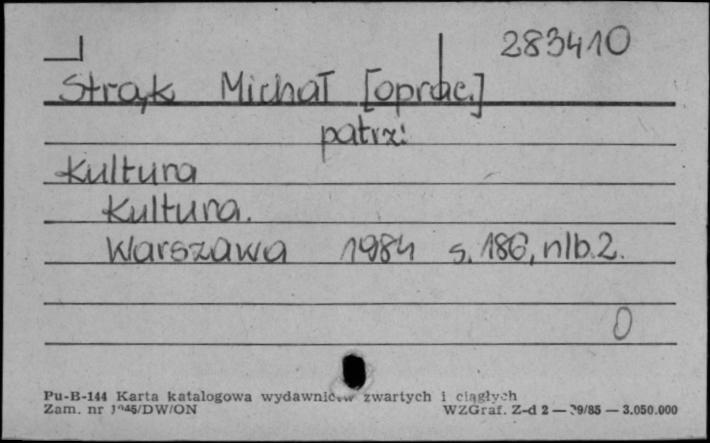 283410
Strąk Michał [oprac.]
patrz:
Kultura
Kultura.
Warszawa 1984 s. 186, nlb. 2.
0
Pu-B-144 Karta katalogowa wydawnictw zwartych i ciągłych
Zam. nr /DW/ON WZGraf. Z-d 2 — 29/85 — 3.050.000